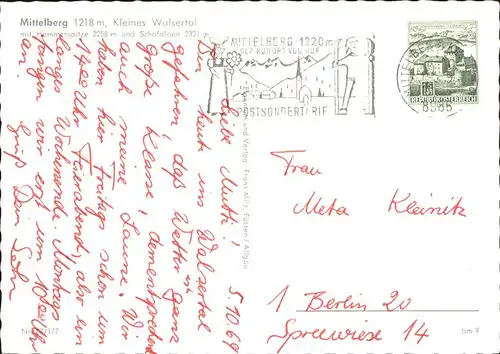 Mittelberg 1218 m, Kleines Walsertal
mit Hammerspitze 2258 m und Schafalpen 2321 m
MITTELBERG-1220m
DER KURORT VON RUF
POSTSONDERTARIF
REPUBLIK ÖSTERREICH
und Verlag Franz Milz, Füssen / Allgäu
5.10.69
Liebe Mutti!
Bin heute ins Walsertal
gefahren, das Wetter ist ganz
große Klasse, dementsprechend
auch meine Laune. Wir
haben hier Freitags schon um
14 00 Uhr Feierabend, also ein
langes Wochenende. Montags
fangen wir erst um 10 00 Uhr
an.
Gruß Dein
Frau
Meta Kleinitz
1 Berlin 20
Spreewiese 14
bm 9